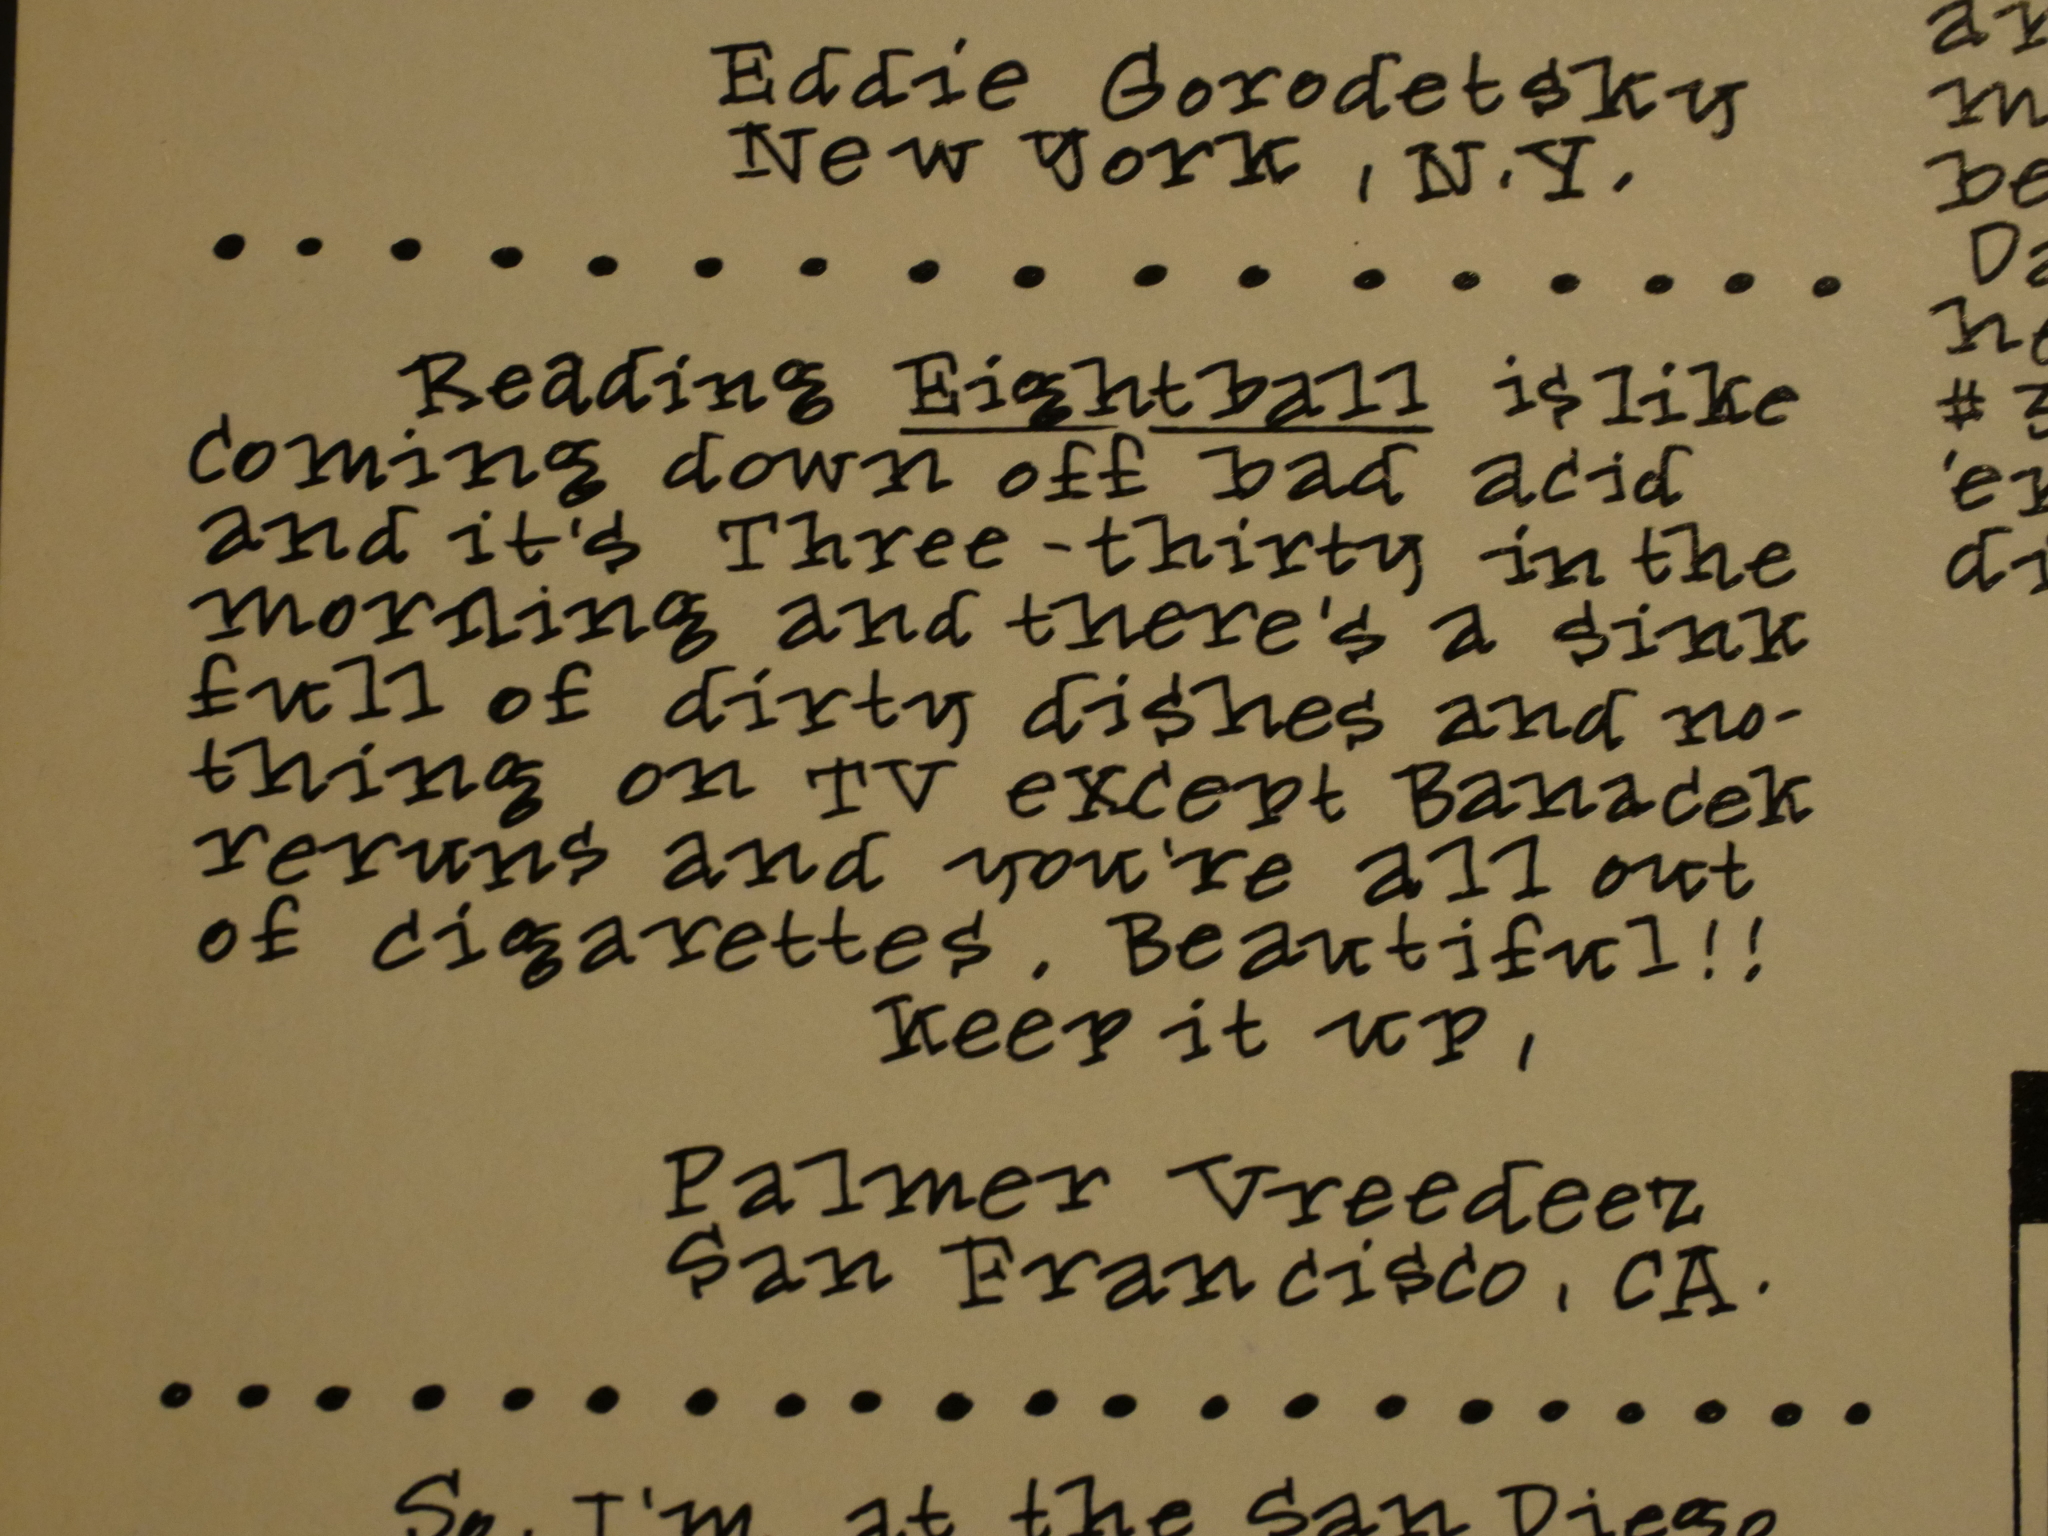 Eddie Gorodetsky
New York, N.Y.
Reading Eightball is like
coming down off bad acid
and it's Three-thirty in the
morning and there's a sink
full of dirty dishes and no-
thing on TV except Banacek
reruns and you're all out
of cigarettes. Beautiful!!
Keep it up,
Palmer Vreedeez
San Francisco, CA.
So, I'm at the San Diego
be
#3